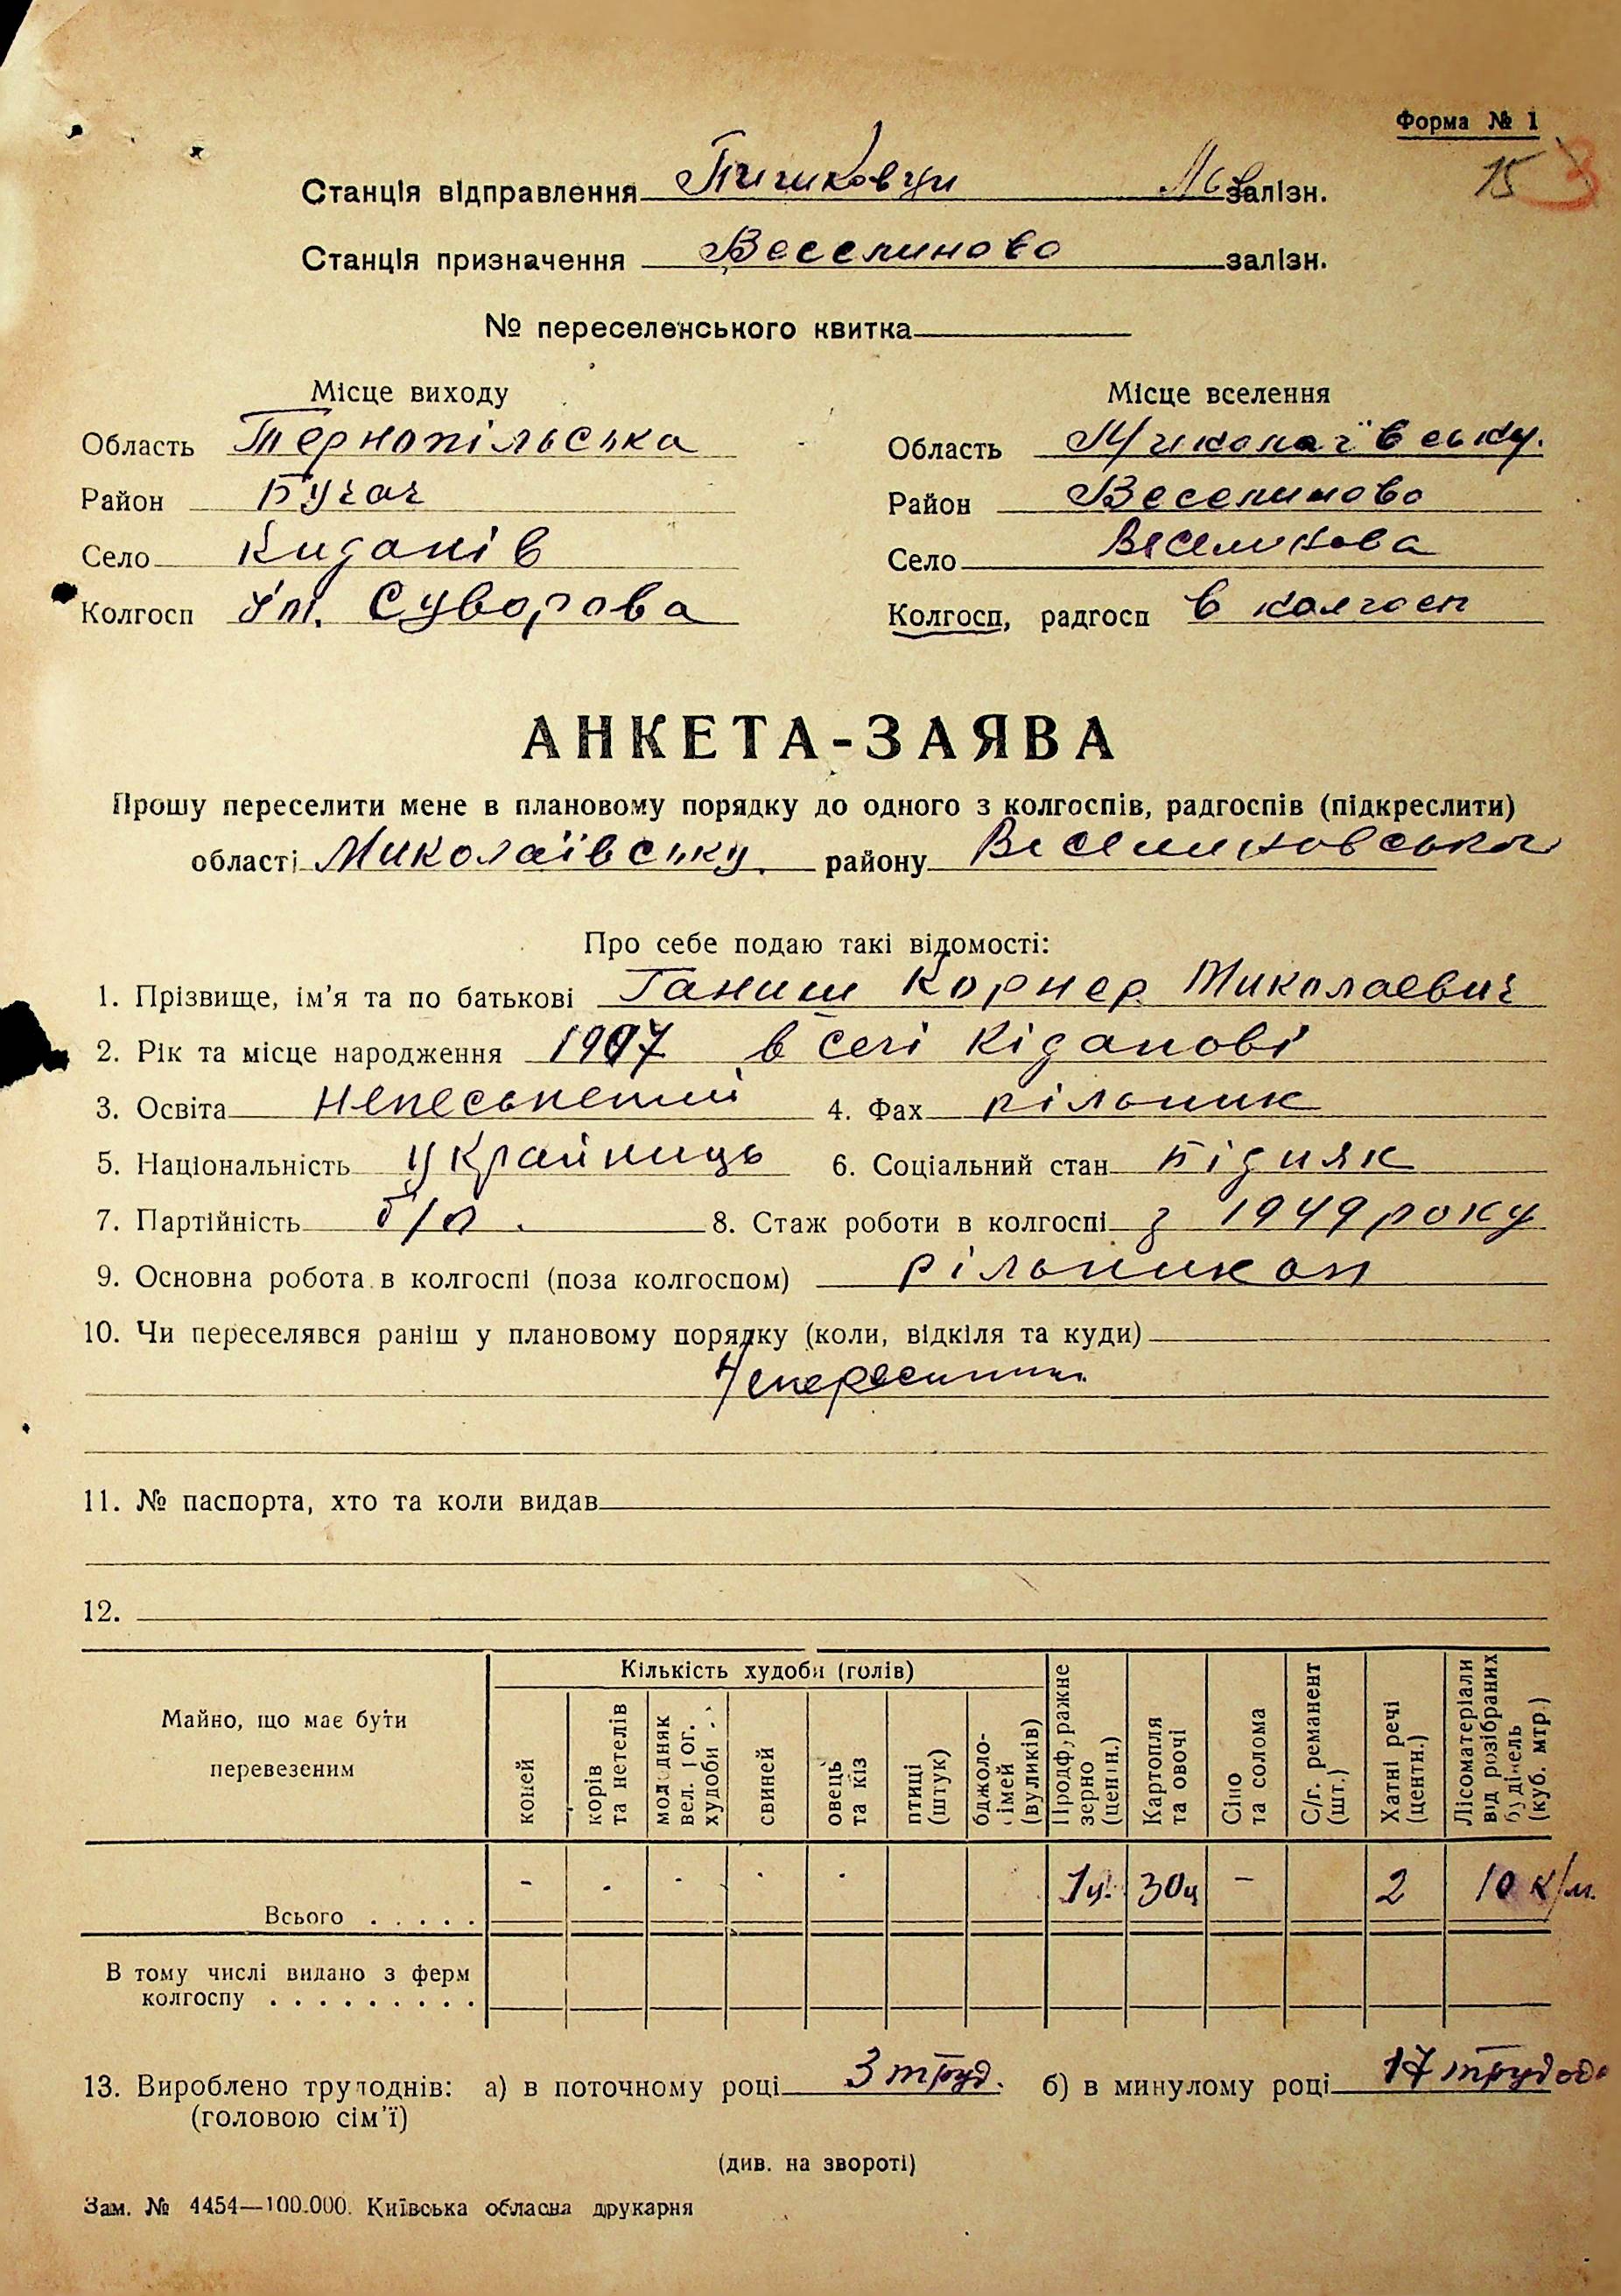 Форма № 1
15 3
Станція відправлення Пишковци залізн.
Станція призначення Веселиново залізн.
№ переселенського квитка
Місце виходу Місце вселення
Область Тернопільська Область Миколаївську.
Район Бучач Район Веселиново
Село Киданів Село Веселинова
Колгосп Ім. Суворова Колгосп, радгосп в колгосп
АНКЕТА-ЗАЯВА
Прошу переселити мене в плановому порядку до одного з колгоспів, радгоспів (підкреслити)
області Миколаївську. району Веселиновська
Про себе подаю такі відомості:
1. Прізвище, ім'я та по батькові Ганиш Корнер Миколаевич
2. Рік та місце народження 1907 в селі Кіданові
3. Освіта 4. Фах рільник
5. Національність Украйниць 6. Соціальний стан бідняк
7. Партійність б/п. 8. Стаж роботи в колгоспі з 1949 року
9. Основна робота в колгоспі (поза колгоспом) рільником
10. Чи переселявся раніш у плановому порядку (коли, відкіля та куди)
11. № паспорта, хто та коли видав
12.
Майно, що має бути перевезеним Кількість худоби (голів)
коней корів та нетелів молодняк вел. рог. худоби свиней овець та кіз птиці (штук) бджоло-сімей (вуликів) Продфуражне зерно (центн.) Картопля та овочі Сіно та солома С/г. реманент (шт.) Хатні речі (центн.) Лісоматеріали від розібраних будівель (куб. мтр.)
Всього . . . . . - - - - - 1ц. 30ц - 2 10 к/м.
В тому числі видано з ферм
колгоспу . . . . . . . . .
13. Вироблено трудоднів: а) в поточному році 3 труд. б) в минулому році 17 трудод
(головою сім'ї)
(див. на звороті)
Зам. № 4454—100.000. Київська обласна друкарня